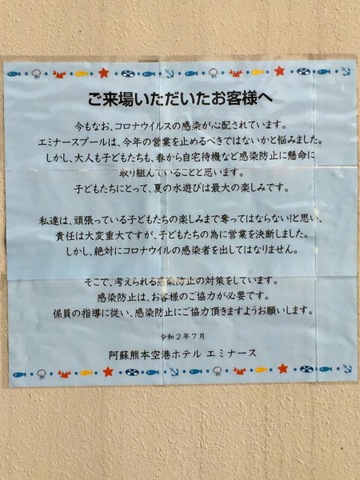 ご来場いただいたお客様へ
今もなお、コロナウイルスの感染が心配されています。
エミナースプールは、今年の営業を止めるべきではないかと悩みました。
しかし、大人も子どもたちも、春から自宅待機など感染防止に懸命に
取り組んでいることと思います。
子どもたちにとって、夏の水遊びは最大の楽しみです。
私達は、頑張っている子どもたちの楽しみまで奪ってはならない!と思い、
責任は大変重大ですが、子どもたちの為に営業を決断しました。
しかし、絶対にコロナウイルスの感染者を出してはなりません。
そこで、考えられる感染防止の対策をしています。
感染防止は、お客様のご協力が必要です。
係員の指導に従い、感染防止にご協力頂きますようお願いします。
令和2年7月
阿蘇熊本空港ホテル エミナース